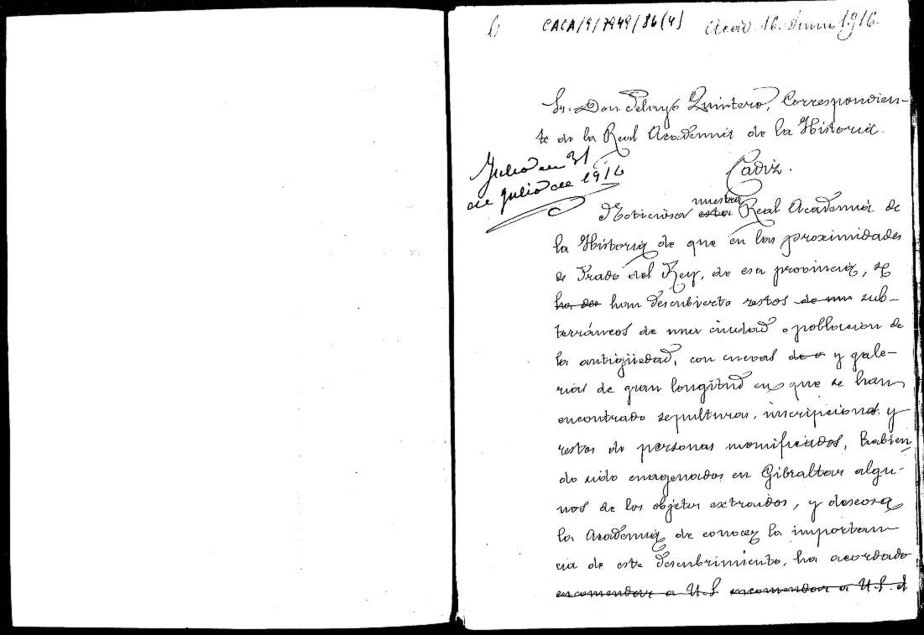 6
CACA/9/7949/86(4)
Acad. 16. Junio 1916.
Sr. Don Pelayo Quintero, Correspondien-
te de la Real Academia de la Historia.
Julio en 31
de julio de 1916
Cádiz.
nuestra
Noticiosa esta Real Academia de
la Historia de que en las proximidades
de Prado del Rey, de esa provincia, se
ha des han descubierto restos de un sub-
terráneos de una ciudad o población de
la antigüedad, con cuevas de y gale-
rias de gran longitud en que se han
encontrado sepulturas, inscripciones y
restos de personas momificados, habien
do sido enagenados en Gibraltar algu-
nos de los objetos extraidos, y deseosa
la Academia de conocer la importan-
cia de este descubrimiento, ha acordado
encomendar a U.S encomendar a U.S. el